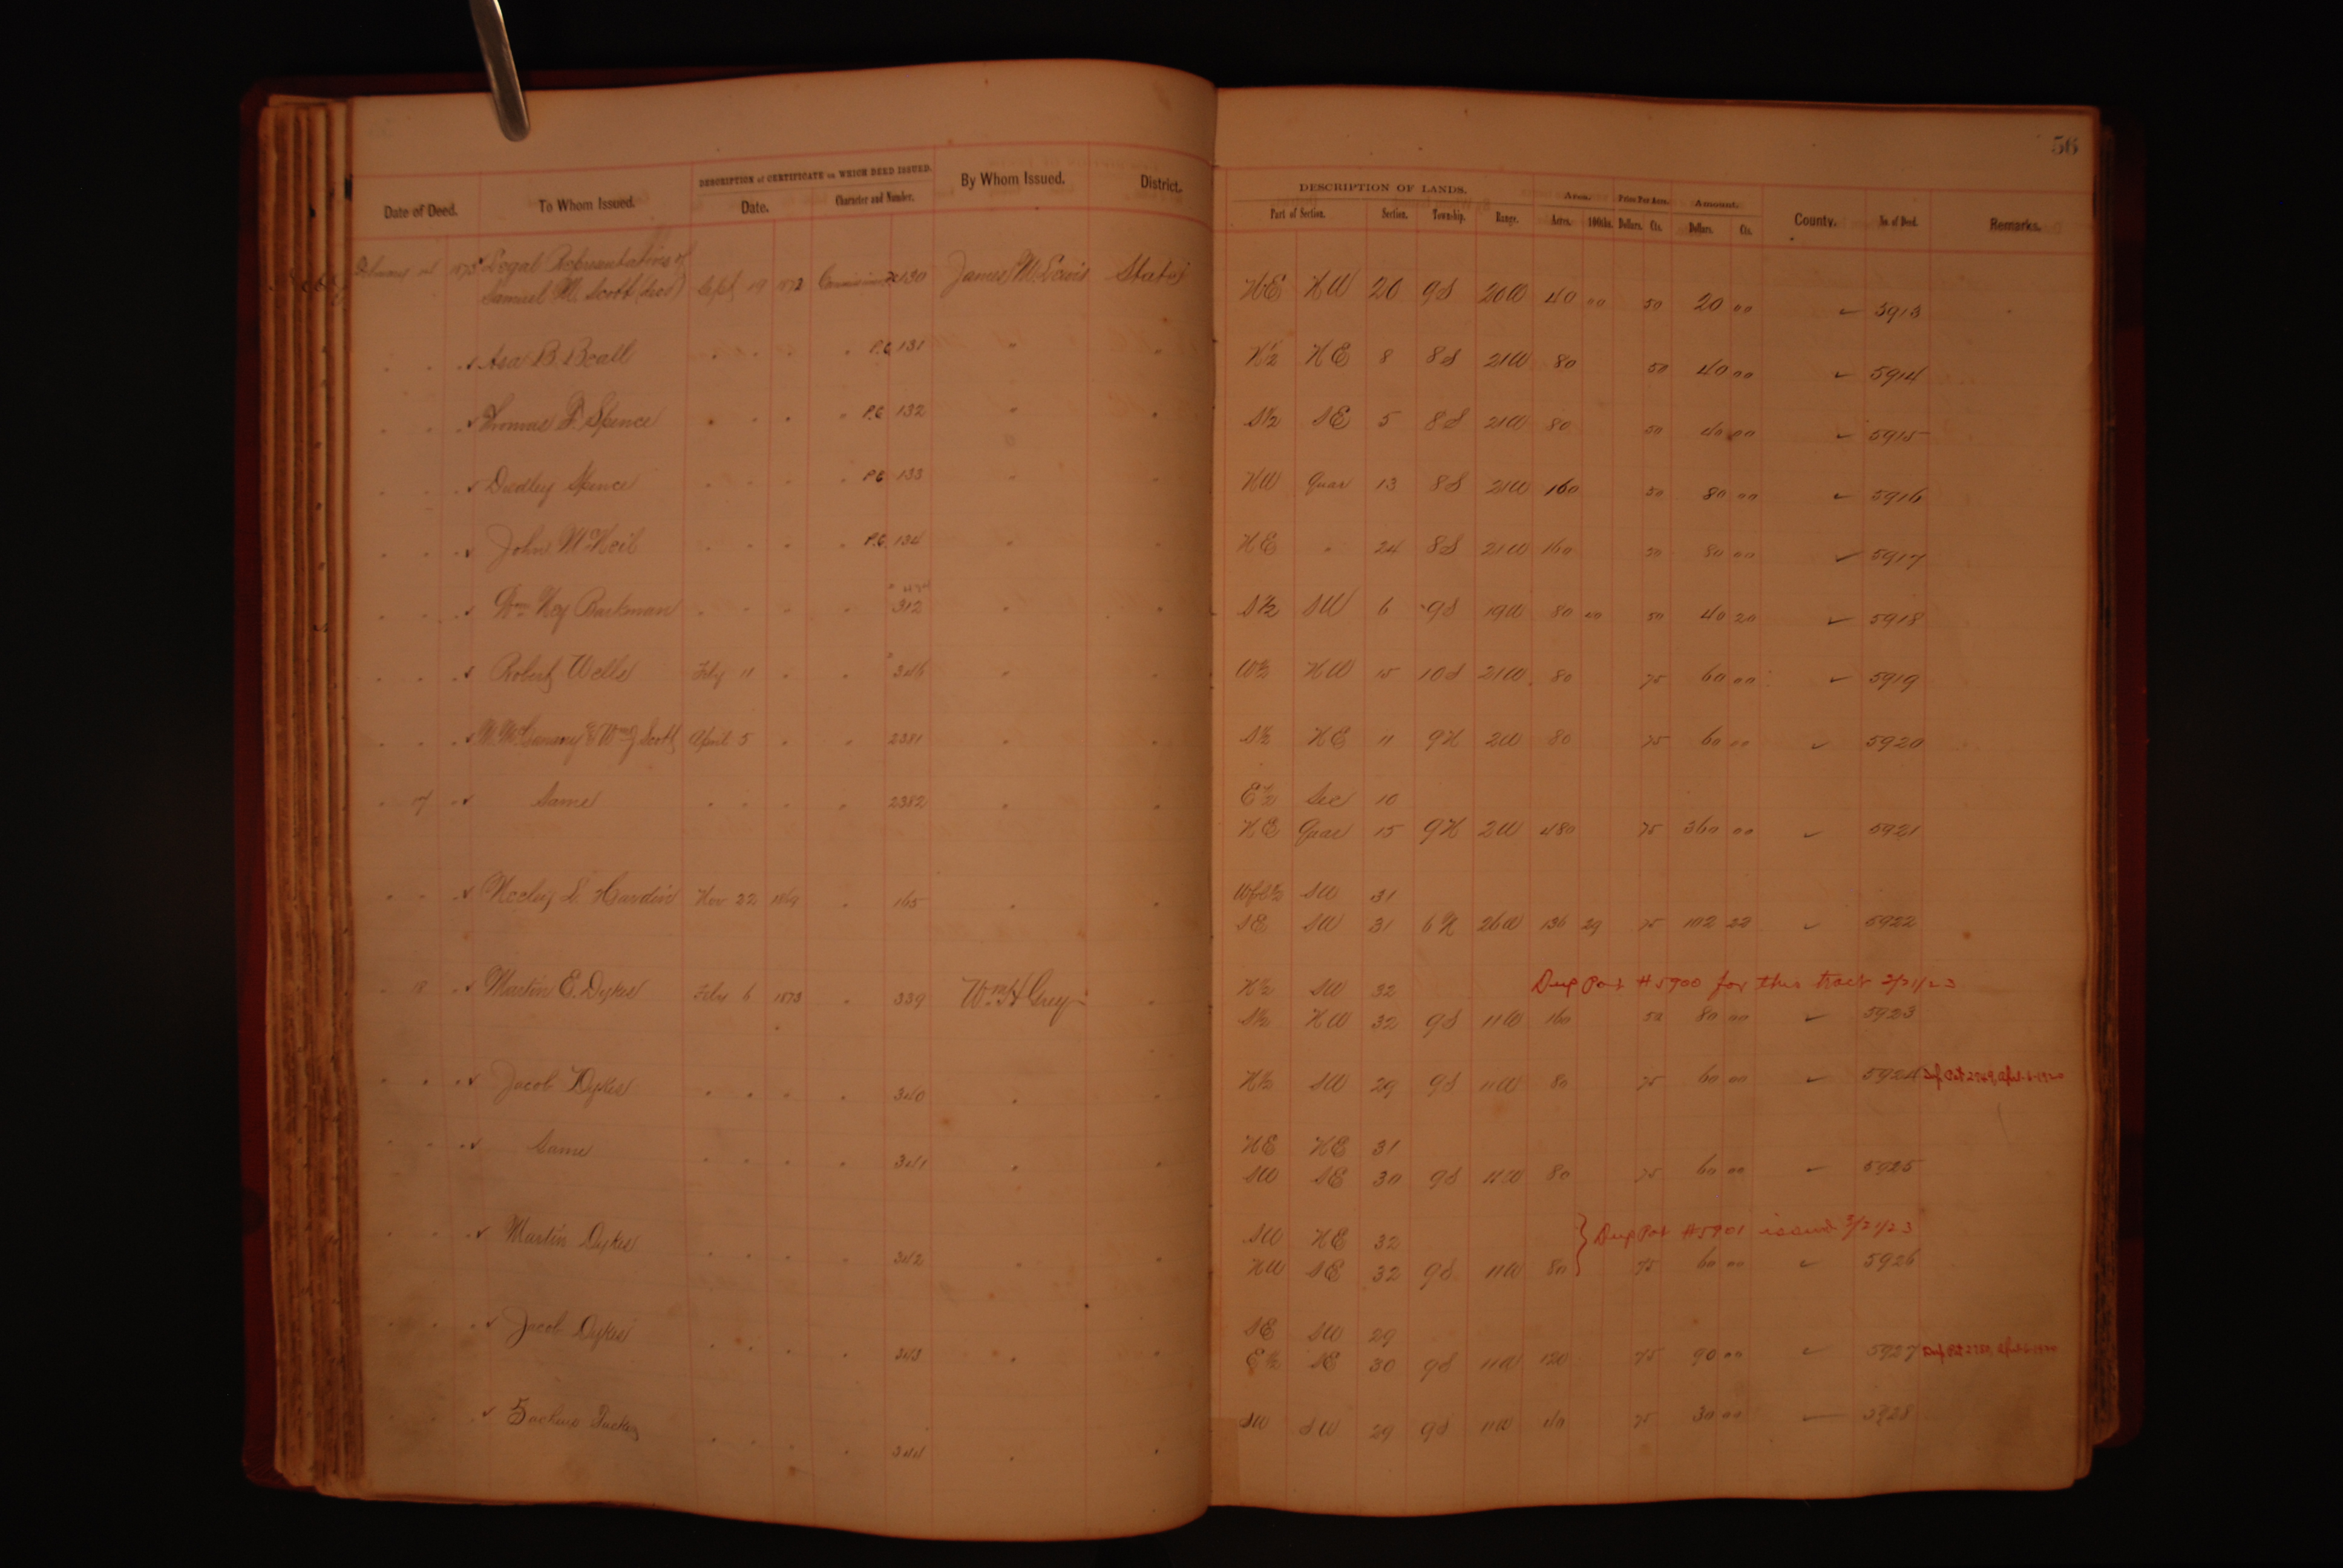 56
DESCRIPTION of CERTIFICATE on WHICH DEED ISSUED. DESCRIPTION OF LANDS. Area. Price Per Acre. Amount.
Date of Deed. To Whom Issued. Date. Character and Number. By Whom Issued. District. Part of Section. Section. Township. Range. Acres. 100ths. Dollars. Cts. Dollars. Cts. County. No. of Deed. Remarks.
1873 Legal Representatives of
Samuel M. Scott (decd) Sept 19 1872 130 James M. Lewis State NE NW 20 9S 20W 40 00 50 20 00 ✓ 5913
" " " ✓ Asa B. Beall " " " " P.C. 131 " " N½ NE 8 8S 21W 80 50 40 00 ✓ 5914
" " " ✓ Thomas F. Spence " " " " P.C. 132 " " S½ SE 5 8S 21W 80 50 40 00 ✓ 5915
" " " ✓ Dudley Spence " " " " P.C. 133 " " NW Quar 13 8S 21W 160 50 80 00 ✓ 5916
" " " ✓ John McNeil " " " " P.C. 134 " " NE " 24 8S 21W 160 50 80 00 ✓ 5917
" " " ✓ Key Barkman " " " " 312 " " S½ SW 6 9S 19W 80 40 50 40 20 ✓ 5918
" " " ✓ Robert Wells Feby 11 " " 346 " " W½ NW 15 10S 21W 80 75 60 00 ✓ 5919
" " " ✓ & Wm J Scott April 5 " " 2381 " " S½ NE 11 9N 2W 80 75 60 00 ✓ 5920
" 17 " ✓ Same " " " " 2382 " " E½ Sec 10
NE Quar 15 9N 2W 480 75 360 00 ✓ 5921
" " " ✓ Neely L. Hardin Nov 22 1869 " 165 " " SW 31
SE SW 31 6N 26W 136 29 75 102 22 ✓ 5922
" 18 " ✓ Martin E. Dykes Feby 6 1873 " 339 Wm H Grey " N½ SW 32 Dup Pat #5900 for this tract 3/21/23
S½ NW 32 9S 11W 160 50 80 00 ✓ 5923
" " " ✓ Jacob Dykes " " " " 340 " " N½ SW 29 9S 11W 80 75 60 00 ✓ 5924
" " " ✓ Same " " " " 341 " " NE NE 31
SW SE 30 9S 11W 80 75 60 00 ✓ 5925
" " " ✓ Martin Dykes " " " " 342 " " SW NE 32 Dup Pat #5901 issued 3/21/23
NW SE 32 9S 11W 80 75 60 00 ✓ 5926
" " " ✓ Jacob Dykes " " " " 343 " " SE SW 29
E½ SE 30 9S 11W 120 75 90 00 ✓ 5927
" " " ✓ " " " " 344 " " SW SW 29 9S 11W 40 75 30 00 5928